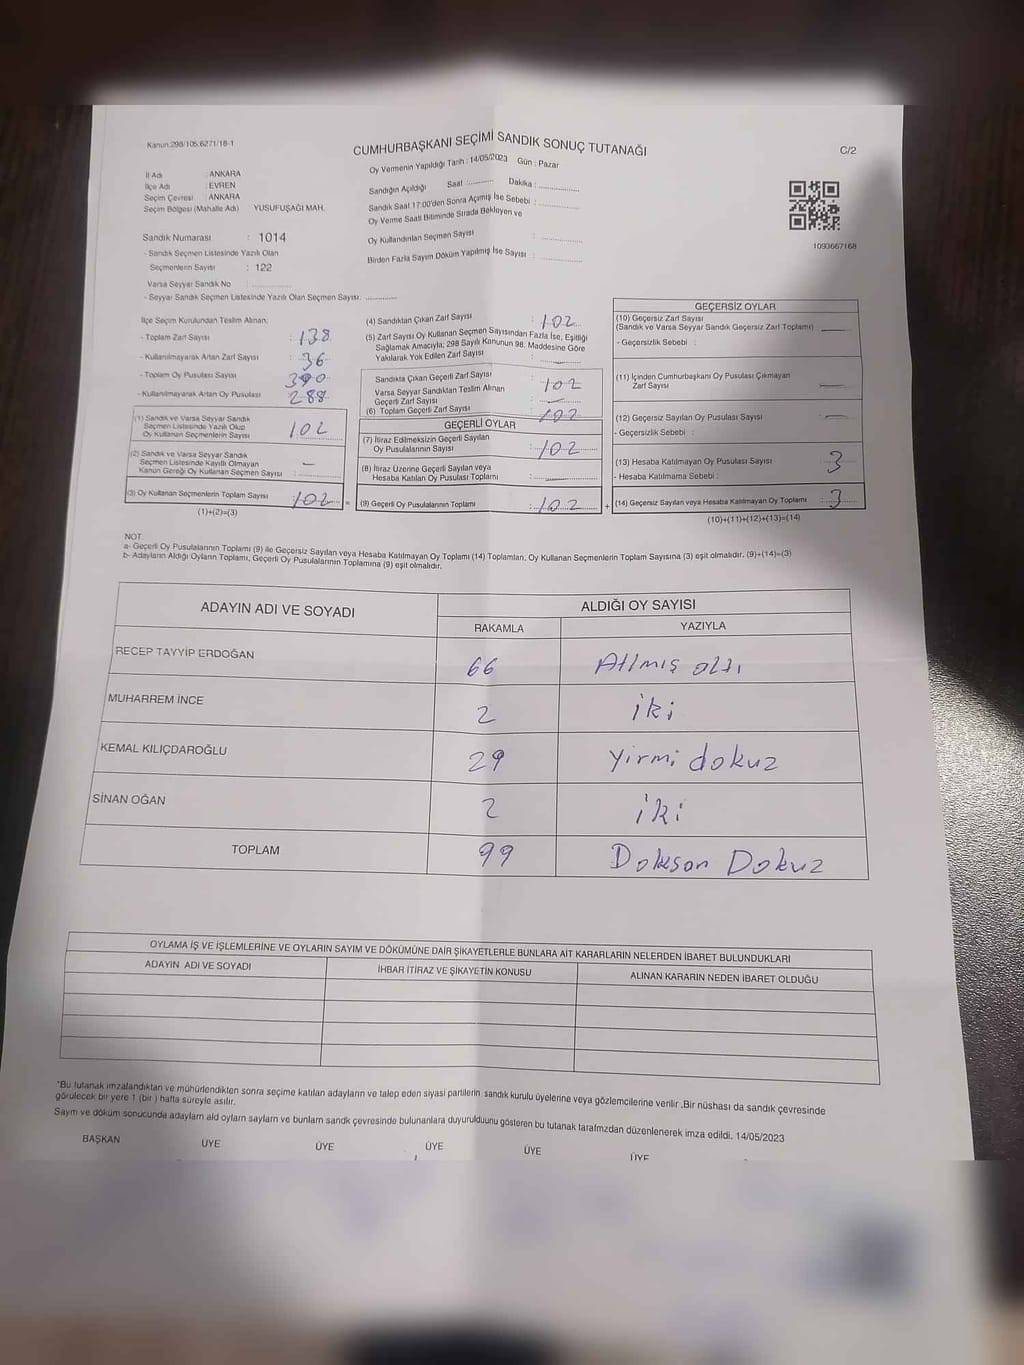 Kanun:298/105,6271/18-1
CUMHURBAŞKANI SEÇİMİ SANDIK SONUÇ TUTANAĞI
C/2
İl Adı : ANKARA
İlçe Adı : EVREN
Seçim Çevresi : ANKARA
Seçim Bölgesi (Mahalle Adı) YUSUFUŞAĞI MAH.
Sandık Numarası : 1014
- Sandık Seçmen Listesinde Yazılı Olan
Seçmenlerin Sayısı : 122
Varsa Seyyar Sandık No
- Seyyar Sandık Seçmen Listesinde Yazılı Olan Seçmen Sayısı:
Oy Vermenin Yapıldığı Tarih : 14/05/2023 Gün : Pazar
Sandığın Açıldığı Saat : Dakika :
Sandık Saat 17:00'den Sonra Açımış İse Sebebi :
Oy Verme Saati Bitiminde Sırada Bekleyen ve
Oy Kullandırılan Seçmen Sayısı :
Birden Fazla Sayım Döküm Yapılmış İse Sayısı :
1093667168
İlçe Seçim Kurulundan Teslim Alınan;
- Toplam Zarf Sayısı : 138
- Kullanılmayarak Artan Zarf Sayısı : 36
- Toplam Oy Pusulası Sayısı : 390
- Kullanılmayarak Artan Oy Pusulası : 288
(1) Sandık ve Varsa Seyyar Sandık
Seçmen Listesinde Yazılı Olup
Oy Kullanan Seçmenlerin Sayısı : 102
(2) Sandık ve Varsa Seyyar Sandık
Seçmen Listesinde Kayıtlı Olmayan
Kanun Gereği Oy Kullanan Seçmen Sayısı : —
(3) Oy Kullanan Seçmenlerin Toplam Sayısı 102 =
(1)+(2)=(3)
(4) Sandıktan Çıkan Zarf Sayısı : 102
(5) Zarf Sayısı Oy Kullanan Seçmen Sayısından Fazla İse, Eşitliği
Sağlamak Amacıyla; 298 Sayılı Kanunun 98. Maddesine Göre
Yakılarak Yok Edilen Zarf Sayısı : —
Sandıkta Çıkan Geçerli Zarf Sayısı : 102
Varsa Seyyar Sandıktan Teslim Alınan
Geçerli Zarf Sayısı : —
(6) Toplam Geçerli Zarf Sayısı : 102
GEÇERLİ OYLAR
(7) İtiraz Edilmeksizin Geçerli Sayılan
Oy Pusulalarının Sayısı : 102
(8) İtiraz Üzerine Geçerli Sayılan veya
Hesaba Katılan Oy Pusulası Toplamı : —
(9) Geçerli Oy Pusulalarının Toplamı : 102 +
GEÇERSİZ OYLAR
(10) Geçersiz Zarf Sayısı
(Sandık ve Varsa Seyyar Sandık Geçersiz Zarf Toplamı) —
- Geçersizlik Sebebi :
(11) İçinden Cumhurbaşkanı Oy Pusulası Çıkmayan
Zarf Sayısı —
(12) Geçersiz Sayılan Oy Pusulası Sayısı : —
- Geçersizlik Sebebi :
(13) Hesaba Katılmayan Oy Pusulası Sayısı : 3
- Hesaba Katılmama Sebebi :
(14) Geçersiz Sayılan veya Hesaba Katılmayan Oy Toplamı : 3
(10)+(11)+(12)+(13)=(14)
NOT:
a- Geçerli Oy Pusulalarının Toplamı (9) ile Geçersiz Sayılan veya Hesaba Katılmayan Oy Toplamı (14) Toplamları, Oy Kullanan Seçmenlerin Toplam Sayısına (3) eşit olmalıdır. (9)+(14)=(3)
b- Adayların Aldığı Oyların Toplamı, Geçerli Oy Pusulalarının Toplamına (9) eşit olmalıdır.
ADAYIN ADI VE SOYADI
ALDIĞI OY SAYISI
RAKAMLA YAZIYLA
RECEP TAYYİP ERDOĞAN 66 Atlmış altı
MUHARREM İNCE 2 iki
KEMAL KILIÇDAROĞLU 29 yirmi dokuz
SİNAN OĞAN 2 iki
TOPLAM 99 Doksan Dokuz
OYLAMA İŞ VE İŞLEMLERİNE VE OYLARIN SAYIM VE DÖKÜMÜNE DAİR ŞİKAYETLERLE BUNLARA AİT KARARLARIN NELERDEN İBARET BULUNDUKLARI
ADAYIN ADI VE SOYADI İHBAR İTİRAZ VE ŞİKAYETİN KONUSU ALINAN KARARIN NEDEN İBARET OLDUĞU
*Bu tutanak imzalandıktan ve mühürlendikten sonra seçime katılan adayların ve talep eden siyasi partilerin sandık kurulu üyelerine veya gözlemcilerine verilir .Bir nüshası da sandık çevresinde
görülecek bir yere 1 (bir ) hafta süreyle asılır.
Sayım ve döküm sonucunda adayların aldı oyların sayların ve bunların sandk çevresinde bulunanlara duyurulduunu gösteren bu tutanak tarafmzdan düzenlenerek imza edildi. 14/05/2023
BAŞKAN ÜYE ÜYE ÜYE ÜYE ÜYE